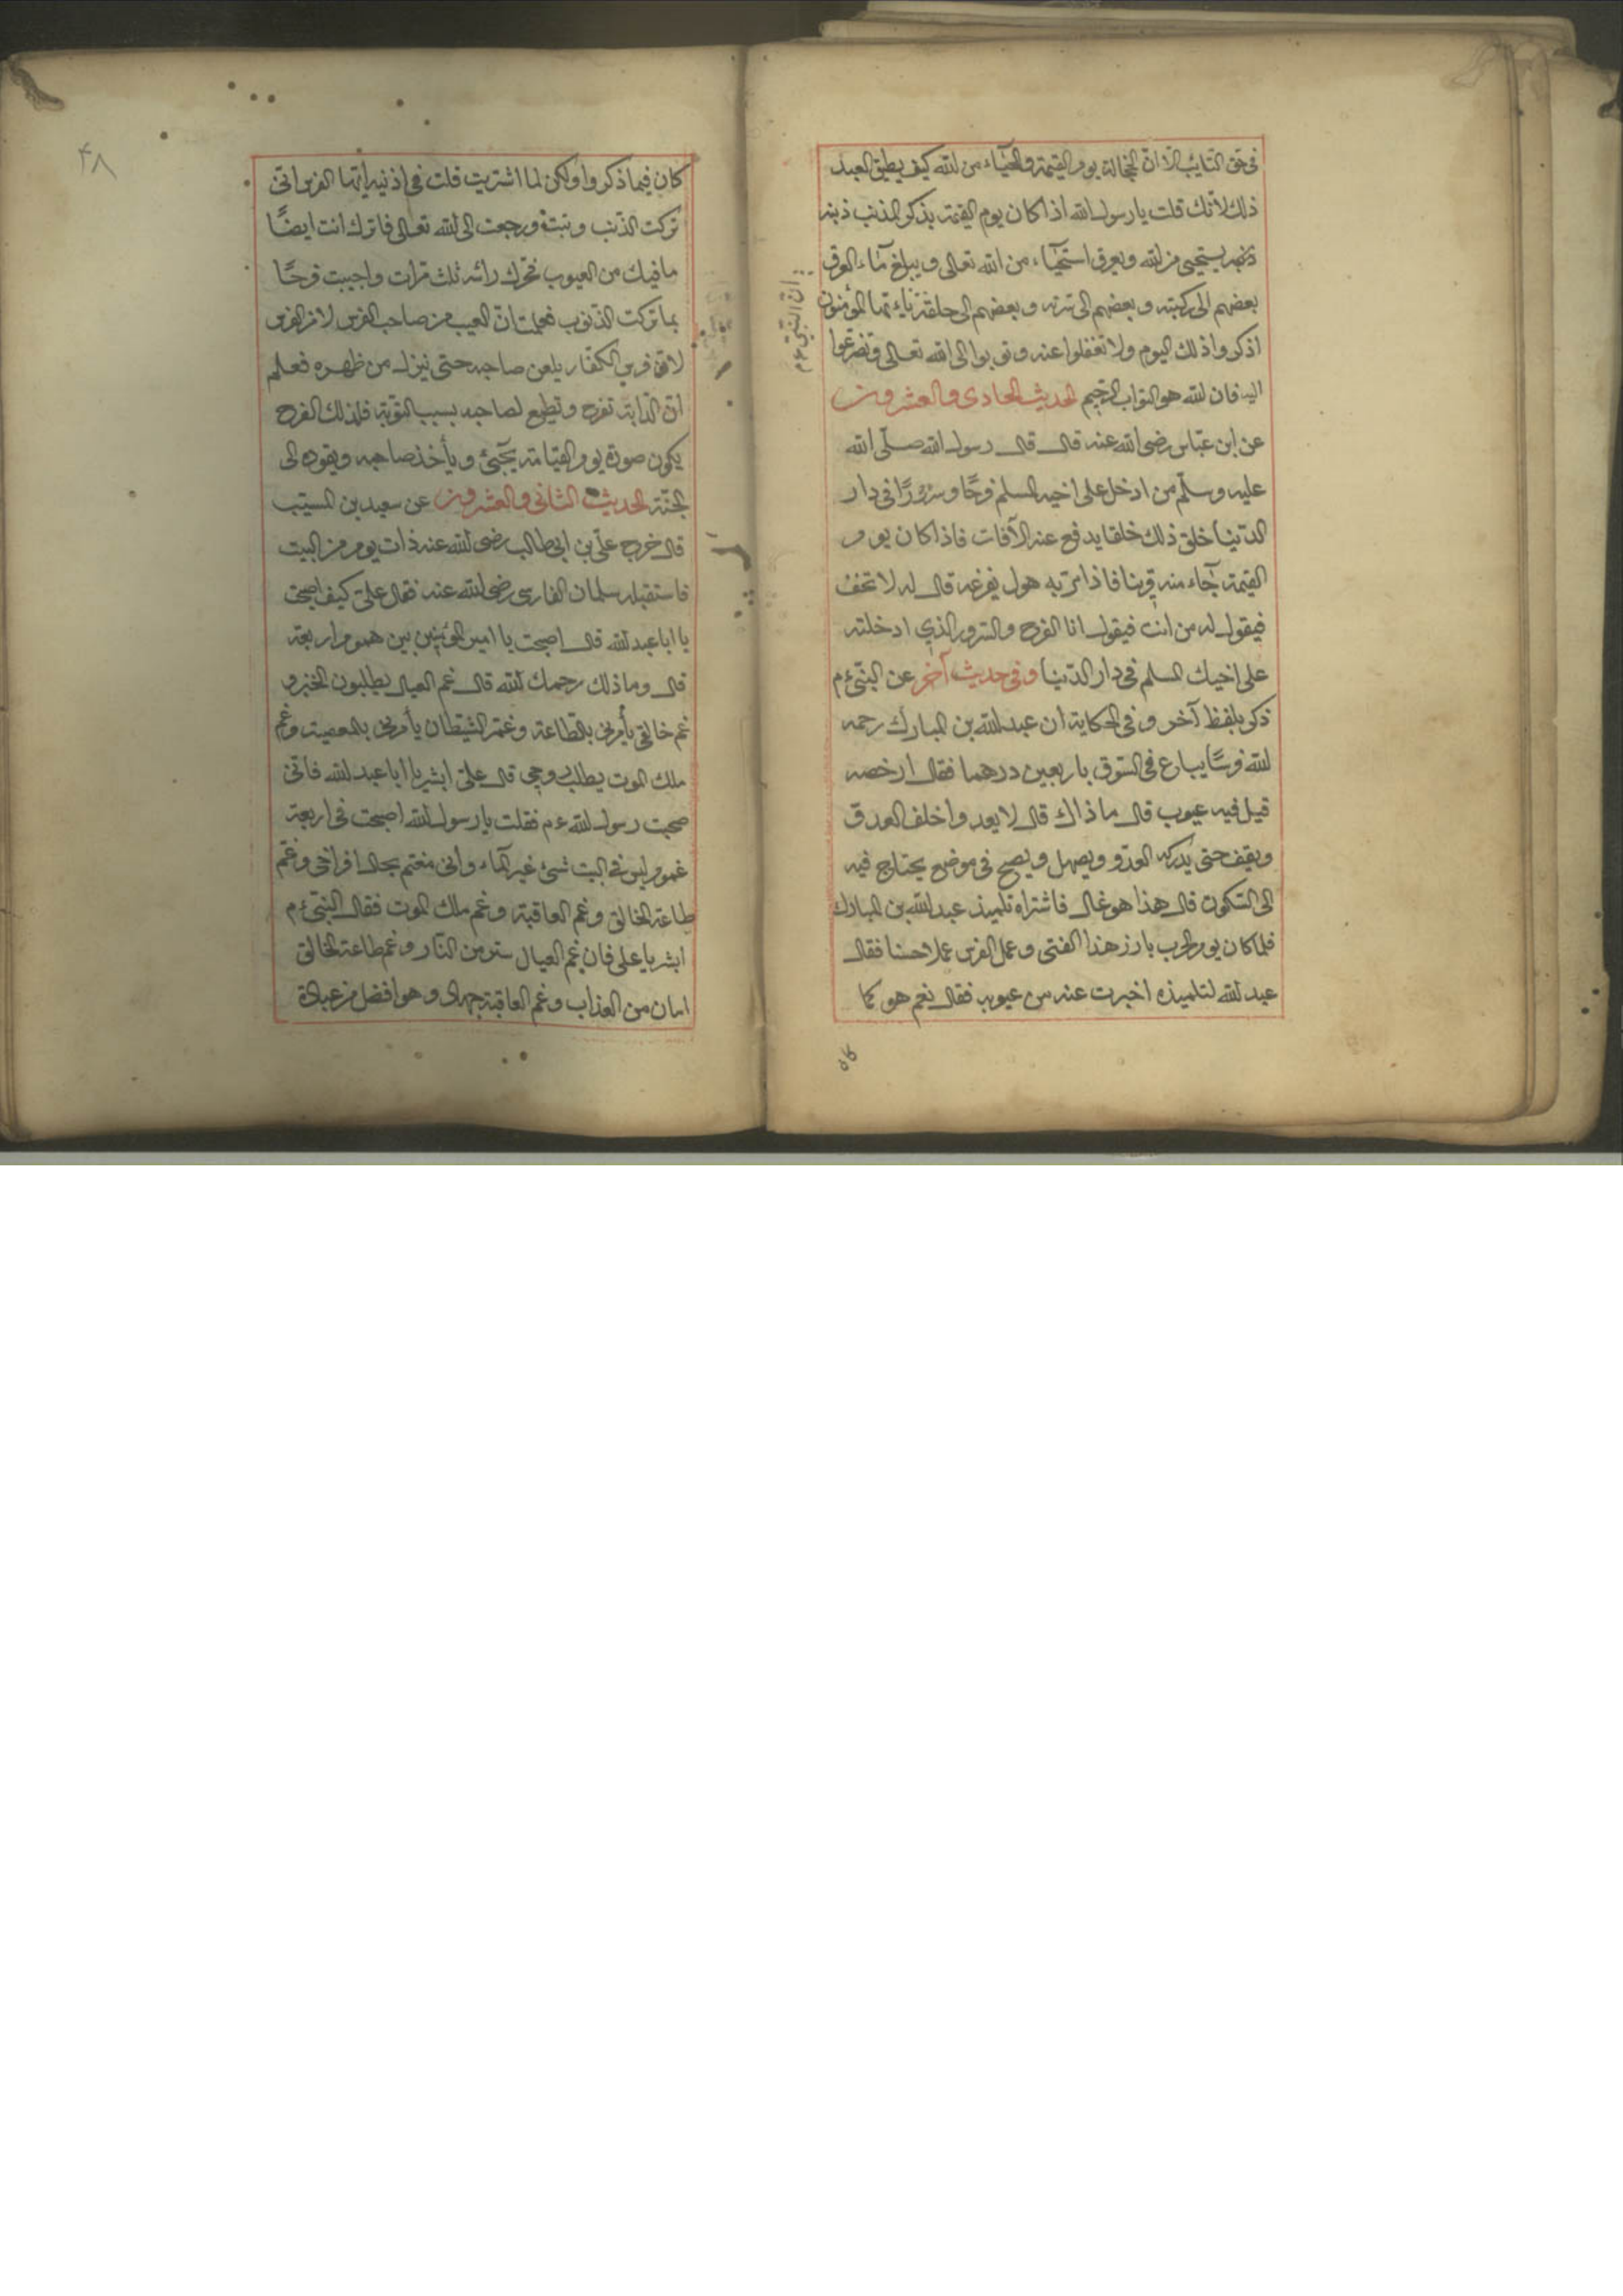 فى حق التايب الا ان الخجالة يوم القيمة والحياء من الله كيف يطيق العبد
ذلك لانك قلت يا رسول الله اذا كان يوم القيمة يذكر المذنب ذنبه
يستحيى من الله ويعرق استحياء من الله تعالى ويبلغ ماء العرق
بعضهم الى ركبته وبعضهم الى سرته وبعضهم الى حلقه يا ايها المؤمنون
اذكروا ذلك اليوم ولا تغفلوا عنه وتوبوا الى الله تعالى وتضرعوا
اليه فان الله هو التواب الرحيم الحديث الحادى والعشرون
عن ابن عباس رضى الله عنه قال قال رسول الله صلى الله
عليه وسلم من ادخل على اخيه المسلم فرحًا وسرورًا فى دار
الدنيا خلق ذلك خلقا يدفع عنه الآفات فاذا كان يوم
القيمة جاء منه قرينا فاذا مر به هول يفزعه قال له لا تخف
فيقول له من انت فيقول انا الفرح والسرور الذي ادخلته
على اخيك المسلم فى دار الدنيا وفى حديث آخر عن النبى ءم
ذكر بلفظ آخر وفى الحكاية ان عبد الله بن المبارك رحمه
الله فرسًا يباع فى السوق باربعين درهما فقال ارخصه
قيل فيه عيوب قال ما ذاك قال لا يعدوا خلف العدو
ويقف حتى يدركه العدو ويصهل ويصيح فى موضع يحتاج فيه
الى السكون قال هذا هو غال فاشتراه تلميذ عبد الله بن المبارك
فلما كان يوم الحرب بارز هذا الفتى وعمل الفرس عملا حسنا فقال
عبد الله لتلميذه اخبرت عنه من عيوبه فقال نعم هو كما
ان النبى ءم
كان
٤٨
كان فيما ذكروا ولكن لما اشتريت قلت فى اذنيه ايها الفرس انى
تركت الذنب وتبت ورجعت الى الله تعالى فاترك انت ايضًا
ما فيك من العيوب فحرك رائسه ثلث مرات واجيبت فرحًا
بما تركت الذنوب فعلمت ان العيب من صاحب الفرس لا من الفرس
لان فرس الكفار يلعن صاحبه حتى ينزل من ظهره فعلم
ان الدابة تفرح وتطيع لصاحبه بسبب التوبة فلذلك الفرح
يكون صورة يوم القيامة يجيئ ويأخذ صاحبه ويقوده الى
الجنة الحديث الثانى والعشرون عن سعيد بن المسيب
قال خرج على بن ابى طالب رضى الله عنه ذات يوم من البيت
فاستقبله سلمان الفارسى رضى الله عنه فقال على كيف اصبحت
يا ابا عبد الله قال اصبحت يا امير المؤمنين بين هموم اربعة
قال وما ذلك رحمك الله قال غم العيال يطلبون الخبز و
غم خالقى يأمرنى بالطاعة وغم الشيطان يأمرنى بالمعصية وغم
ملك الموت يطلب روحى قال على ابشر يا ابا عبد الله فانى
صحبت رسول الله ءم فقلت يا رسول الله اصبحت فى اربعة
غموم ليس فى البيت شيئ غير الماء وانى مغتم بحال افراخى وغم
طاعة الخالق وغم العاقبة وغم ملك الموت فقال النبى ءم
ابشر يا على فان غم العيال ستر من النار وغم طاعة الخالق
امان من العذاب وغم العاقبة جهاد وهو افضل من عبادة